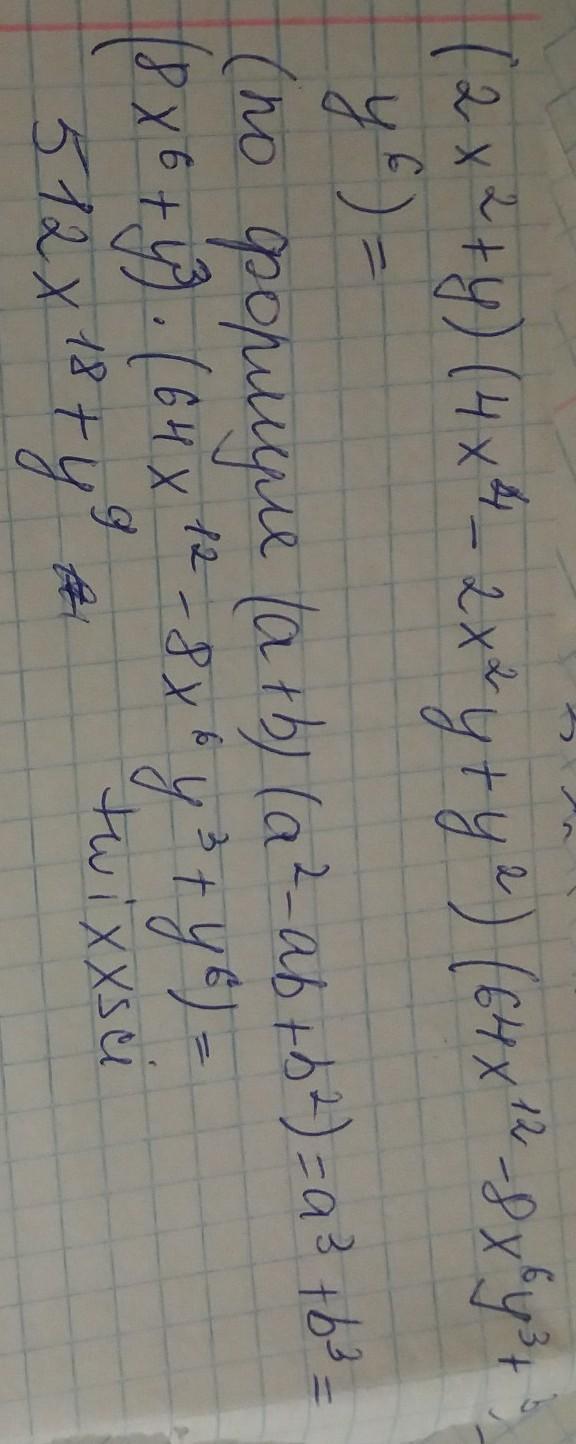 (2x²+y)(4x⁴-2x²y+y²)(64x¹²-8x⁶y³+
y⁶)=
(по формуле (a+b)(a²-ab+b²)=a³+b³=
(8x⁶+y³)·(64x¹²-8x⁶y³+y⁶)=
512x¹⁸+y⁹
twixxsci